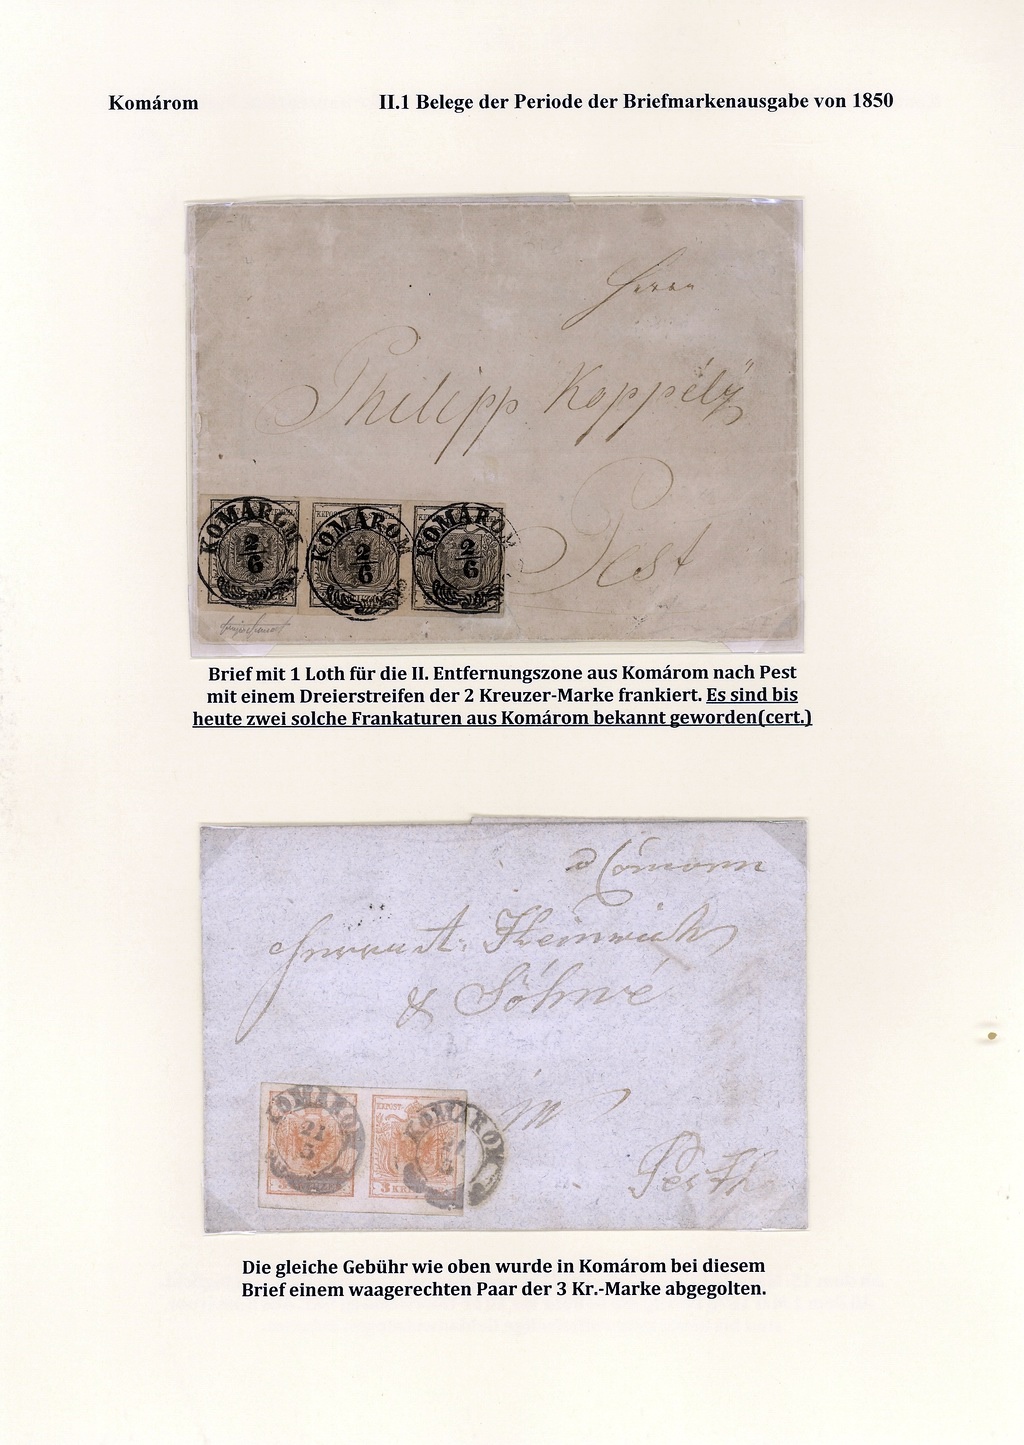 Komárom II.1 Belege der Periode der Briefmarkenausgabe von 1850
Herrn
Philipp Koppély
Pest
KOMÁROM 2/6 KOMÁROM 2/6 KOMÁROM 2/6
Brief mit 1 Loth für die II. Entfernungszone aus Komárom nach Pest
mit einem Dreierstreifen der 2 Kreuzer-Marke frankiert. Es sind bis
heute zwei solche Frankaturen aus Komárom bekannt geworden(cert.)
Heinrich
& Söhne
KOMÁROM 21 KOMÁROM
3 KRE
Pesth
Die gleiche Gebühr wie oben wurde in Komárom bei diesem
Brief einem waagerechten Paar der 3 Kr.-Marke abgegolten.